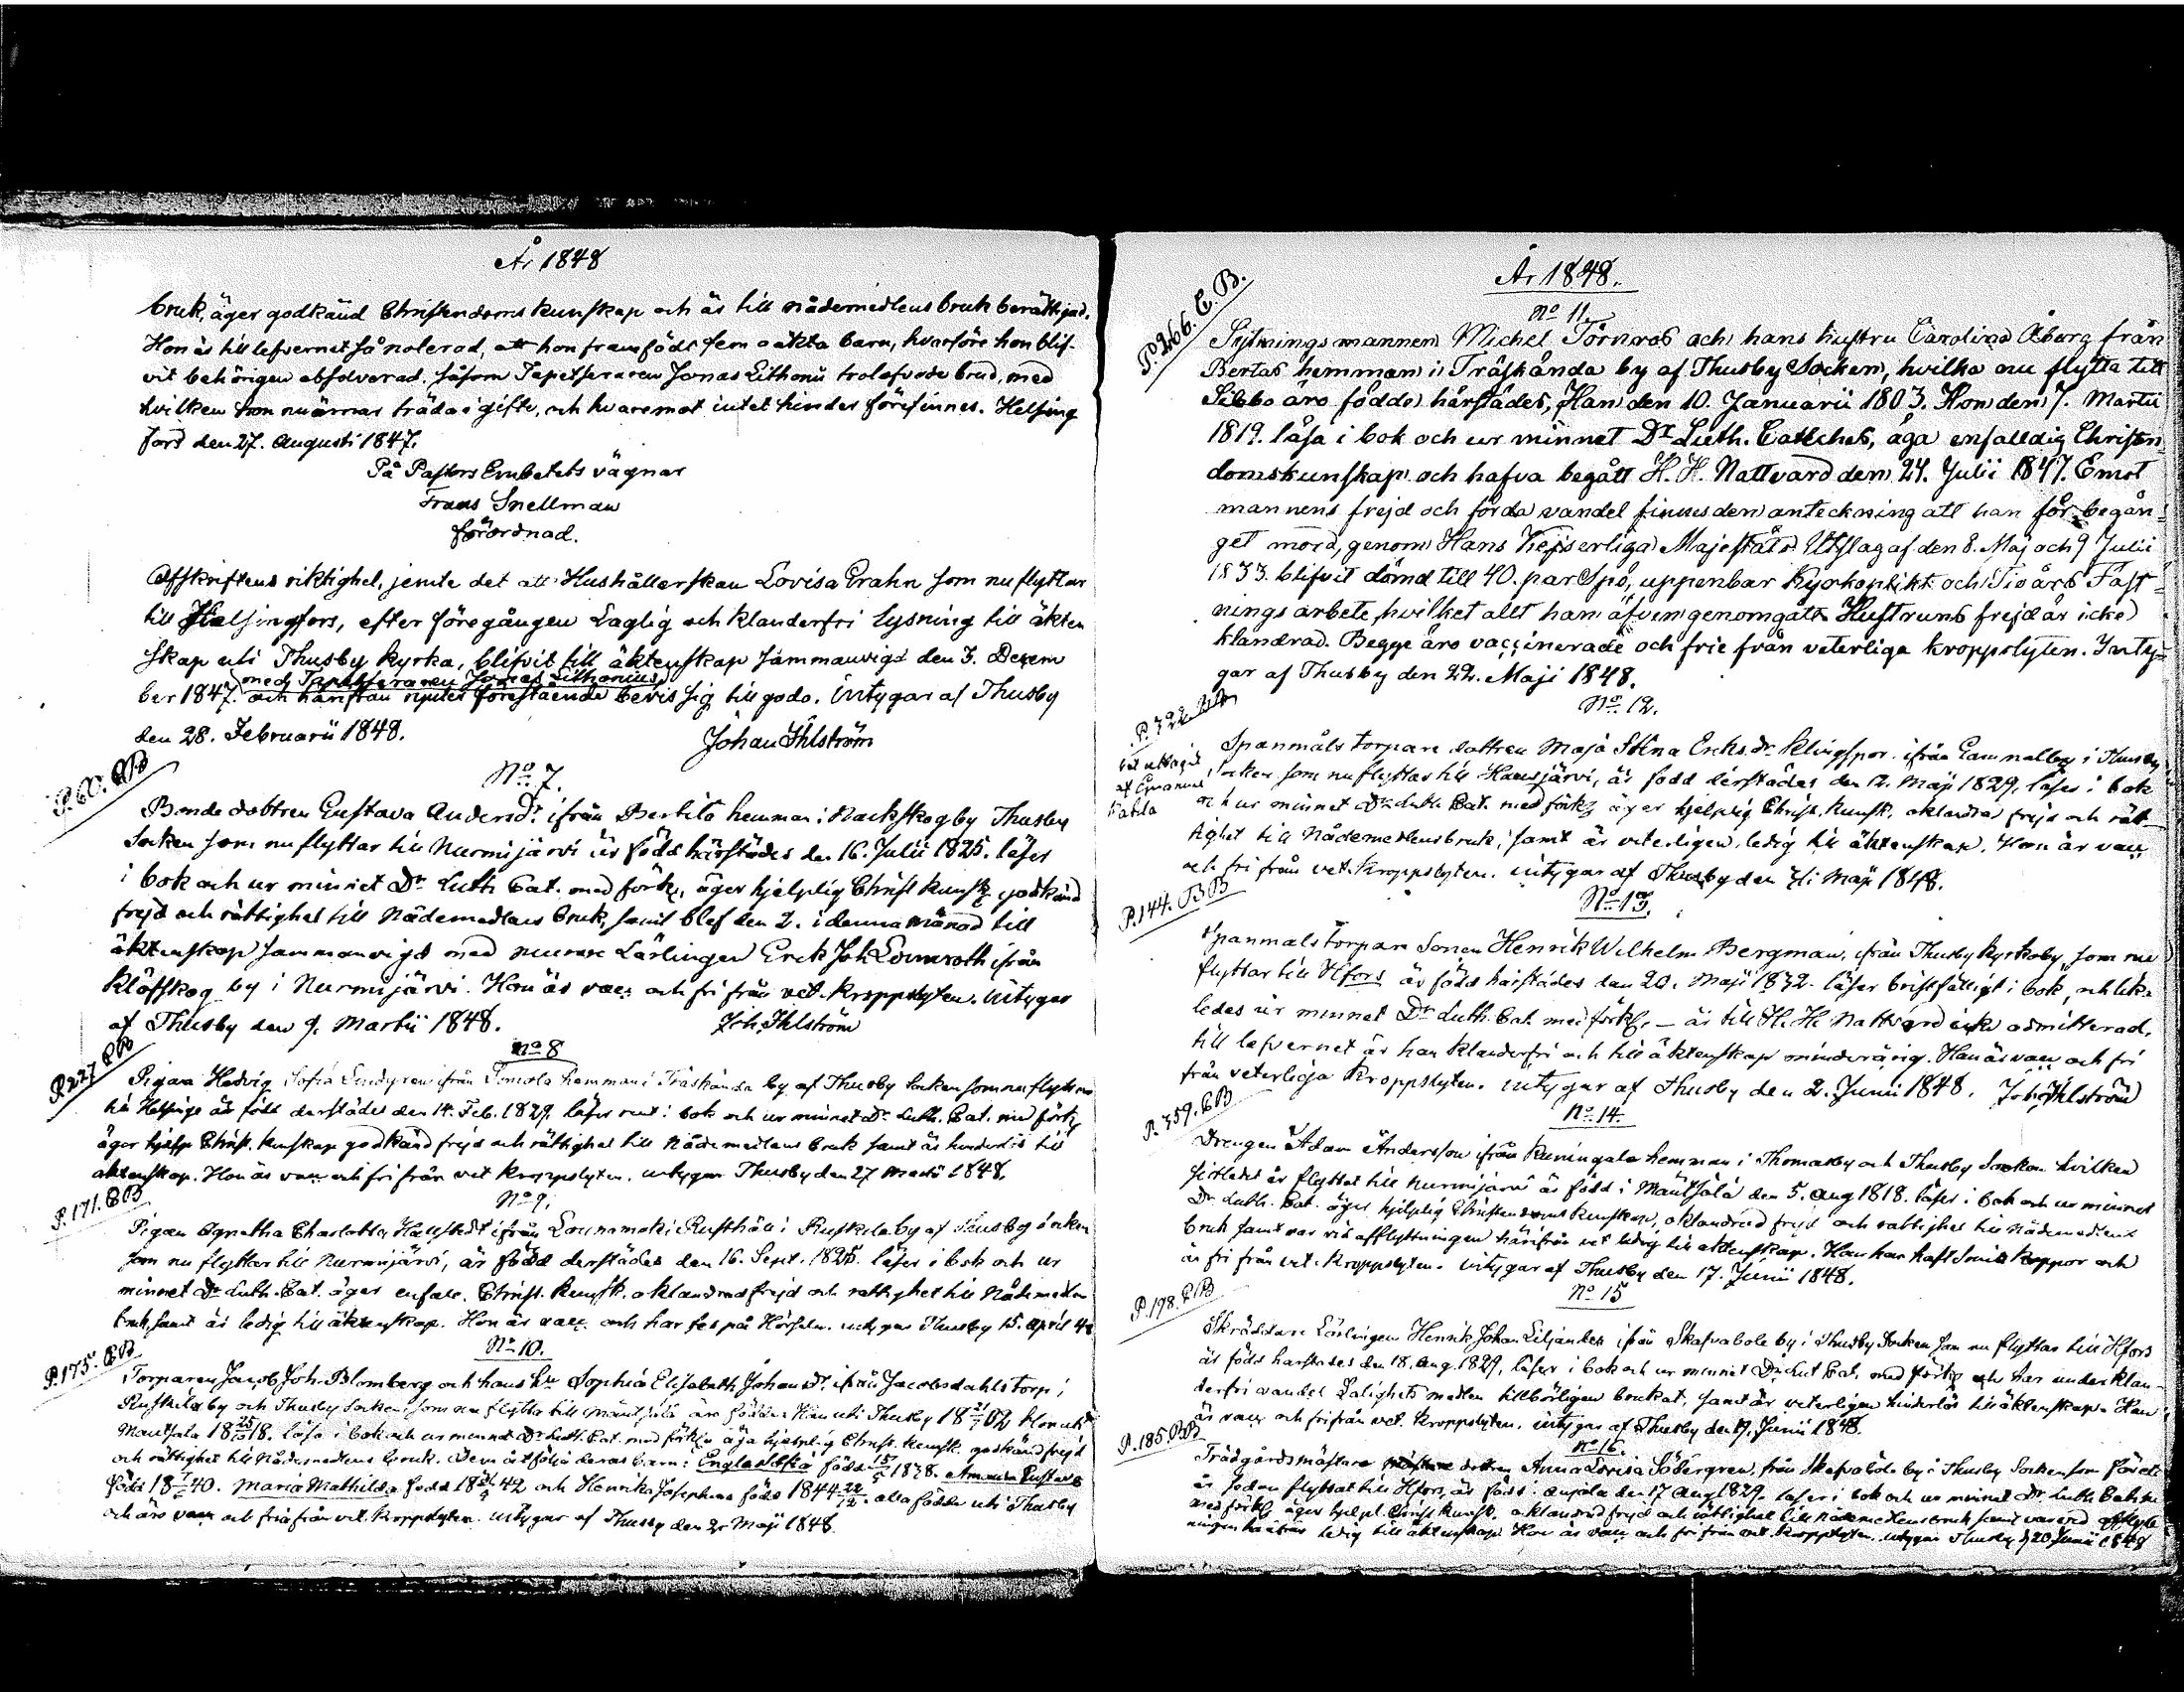 År 1848
bruk, äger godkänd Christendoms kunskap och är till nådemedlens bruk berättigad.
Hon är till lefvernet så noterad, att hon framfödt fem oäkta barn, hvarföre hon blif-
vit behörigen absolverad. såsom Tapetseraren Jonas Lithonii trolofvade brud, med
hvilken hon nu ärnar träda i gifte, och hvaremot intet hinder förefinnes. Helsing
fors den 27. Augusti 1847.
På Pastors Embetets vägnar
Frans Snellman
förordnad.
Afskriftens riktighet, jemte det att Hushållerskan Lovisa Grahn som nu flyttar
till Helsingfors, efter föregången Laglig och klanderfri Lysning till äkten
skap uti Thusby kyrka, blifvit till äktenskap sammanvigd den 3. Decem
med Tapetseraren Jonas Lithonius
ber 1847. och härifrån njuter förestående bevis sig till godo. Intygar af Thusby
den 28. Februarii 1848. Johan Ihlström
No 7.
Bonde dottren Gustava Andersdr ifrån Bertila hemman i Nackskog by Thusby
Socken som nu flyttar till Nurmijärvi är född härstädes den 16. Julii 1825. läser
i bok och ur minnet Dr Luth Cat. med förkl, äger hjelplig Christ kunsk godkänd
frejd och rättighet till Nådemedlens bruk, samt blef den 2. i denna månad till
äktenskap sammanvigd med murare Lärlingen Erik Joh Lönnroth ifrån
Klöfskog by i Nurmijärvi. Hon är vacc och fri från vet. kroppslyten. Intygar
af Thusby den 9. Martii 1848. Joh. Ihlström
P. 227 CB
No 8
Pigan Hedvig Sofia Lindgren ifrån Tomola hemman i Träskända by af Thusby Socken som nu flyttar
till Helsinge är född derstädes den 14. Feb. 1829. läser rent i bok och ur minnet Dr Luth. Cat. med förkl
äger hjelp Christ. kunskap godkänd frejd och rättighet till Nådemedlens bruk samt är hinderlös till
äktenskap. Hon är vacc och fri från vet kroppslyten. intygar Thusby den 27 Martii 1848.
P. 171. CB
No 9.
Pigan Agnetha Charlotta Hallstedt ifrån Lounamaki Rusthåll i Ruskela by af Thusby Socken
som nu flyttar till Nurmijärvi, är född derstädes den 16. Sept. 1825. läser i bok och ur
minnet Dr Luth. Cat. äger enfald. Christ. kunsk. oklandrad frejd och rättighet till Nådemedlens
bruk, samt är ledig till äktenskap. Hon är vacc. och har fel på Hörseln. intygar Thusby 15. April 48
P. 175. CB
No 10.
Torparen Jacob Joh. Blomberg och hans hu Sophia Elisabeth Johansdr. ifrån Jacobsdahls torp i
Ruskela by och Thusby Socken som nu flytta till Mäntsälä äro födde: Han uti Thusby 18 21/7 02 Hon uti
Mäntsälä 18 25/10 18. läsa i bok och ur minnet Dr Luth. Cat. med förkl: äga hjelplig Christ. kunsk. godkänd frejd
och rättighet till Nådemedlens bruk. Dem åtfölja deras barn: Engla Sofia född 15/5 1838. Amanda Gustava
född 40. Maria Mathilda född 42 och Henrika Josephina född 1844 22/12. alla födde uti Thusby
och äro vacc och fria från vet. kroppslyten. intygar af Thusby den 2 Maji 1848.
År 1848.
P. 266. C. B.
No 11.
Sytningsmannen Michel Törnroos och hans hustru Carolina Åberg från
Bertas hemman i Träskända by af Thusby Socken, hvilka nu flytta till
Sibbo äro födde härstädes, Han den 10. Januarii 1803. Hon den 7. Martii
1819. läsa i bok och ur minnet Dr Luth. Catechés, äga enfalldig Christen
domskunskap och hafva begått H. H. Nattvard den 24. Julii 1847. Emot
mannens frejd och förda vandel finnes den anteckning att han för begån-
get mord, genom Hans Kejserliga Majestäts Utslag af den 8. Maj och 9 Julii
1833. blifvit dömd till 40. par Spö, uppenbar Kyrkoplikt och Tio års Fäst-
ningsarbete, hvilket allt han äfven genomgått. Hustruns frejd är icke
klandrad. Begge äro vaccinerade och frie från veterliga kroppslyten. Inty-
gar af Thusby den 22. Maji 1848.
No 12.
Spanmåls torpare dottren Maja Stina Eriks dr Klingspor ifrån Gammelby i Thusby
Socken som nu flyttar till Hausjärvi, är född derstädes den 12. Maji 1829. läser i bok
och ur minnet Dr Luth. Cat. med förkl äger hjelplig Christ. kunsk. oklandrad frejd och rät-
tighet till Nådemedlens bruk, samt är veterligen ledig till äktenskap. Hon är vacc
och fri från vet. kroppslyten. intygar af Thusby den 31 Maji 1848.
P. 144. BB
No 13.
Spanmåls torpare Sonen Henrik Wilhelm Bergman, ifrån Thusby Kyrkoby, som nu
flyttar till Hfors är född härstädes den 20. Maji 1832. läser bristfälligt i bok, och lika
ledes ur minnet Dr Luth. Cat. med förkl. – är till H. H. Nattvard icke admitterad,
till lefvernet är han klanderfri och till äktenskap minderårig. Han är vacc och fri
från veterliga kroppslyten. intygar af Thusby den 2. Junii 1848. Joh. Ihlström
P. 359. CB
No 14.
Drengen Adam Andersson ifrån Kuningala hemman i Thomasby och Thusby Socken hvilken
sistledet år flyttat till Nurmijärvi är född i Mäntsälä den 5. Aug 1818. läser i bok och ur minnet
Dr Luth. Cat. äger hjelplig Christendoms kunskap, oklandrad frejd och rättighet till Nådemedlens
bruk samt var vid afflyttningen härifrån vet ledig till äktenskap. Han har haft Smittkoppor och
är fri från vet. kroppslyten. intygar af Thusby den 17. Junii 1848.
P. 198. CB
No 15
Skräddare Lärlingen Henrik Johan Liljander ifrån Skafvabole by i Thusby Socken som nu flyttar till Hfors
är född härstädes den 18. Aug. 1829, läser i bok och ur minnet Dr Lut Cat. med förkl och har under klan-
derfri vandel Salighets medlen tillbörligen brukat, samt är veterligen hinderlös till äktenskap. Han
är vacc och fri från vet. kroppslyten. intygar af Thusby den 19. Junii 1848.
P. 185. BB
No 16.
Trädgårdsmästare dottren Anna Lovisa Södergren, från Skafvaböle by i Thusby Socken som
år sedan flyttat till Hfors, är född i den 17 Aug 1829. läser i bok och ur minnet Dr Luth Cateches
med förkl äger hjelpl. Christ kunsk. oklandrad frejd och rättighet till Nådemedlens bruk samt var vid afflytt
ningen härifrån ledig till äktenskap. Hon är vacc och fri från vet. kroppslyten. intygar Thusby d 20 Junii 1848